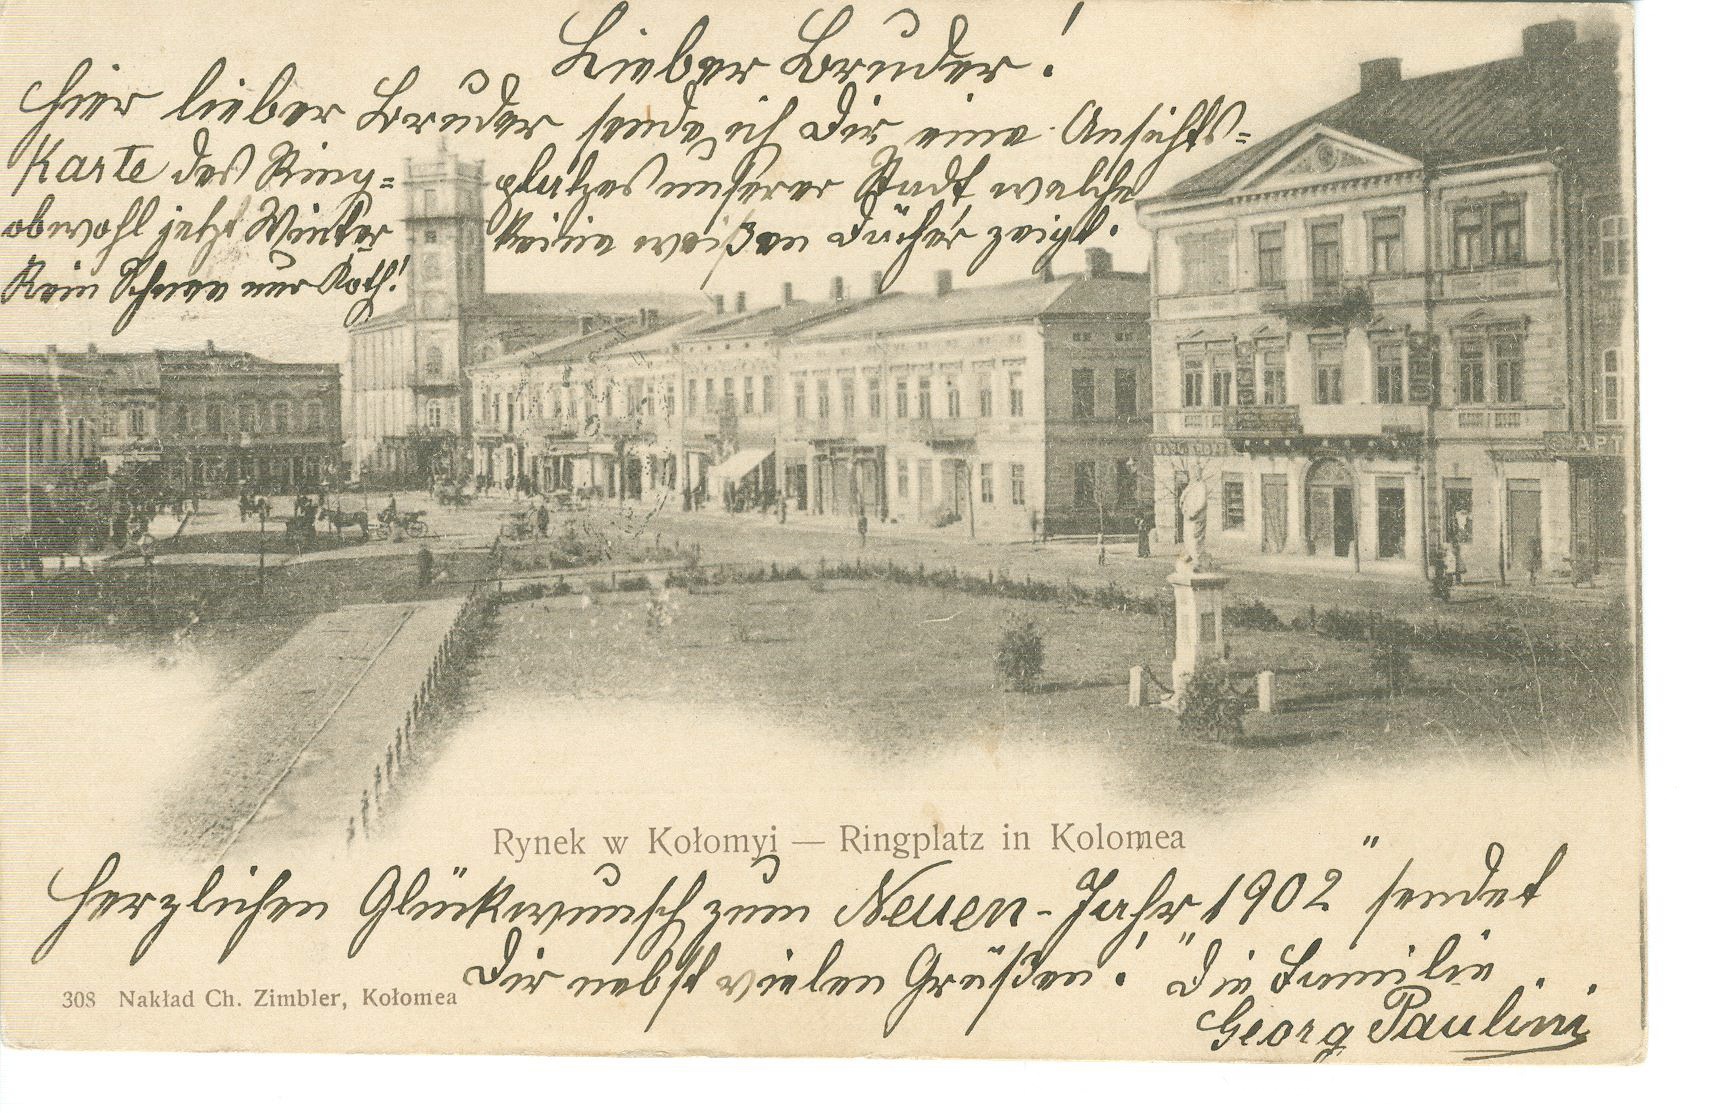 Lieber Bruder!
Hier lieber Bruder sende ich Dir eine Ansichts-
Karte des Ring- platzes unserer Stadt welche
obwohl jetzt Winter keine weißen Dächer zeigt.
Kein Schnee nur Koth!
APT
Rynek w Kołomyi — Ringplatz in Kolomea
Herzlichen Glückwunsch zum Neuen-Jahr 1902" sendet
Dir nebst vielen Grüßen! "Die Familie
308 Nakład Ch. Zimbler, Kołomea
Georg Paulini